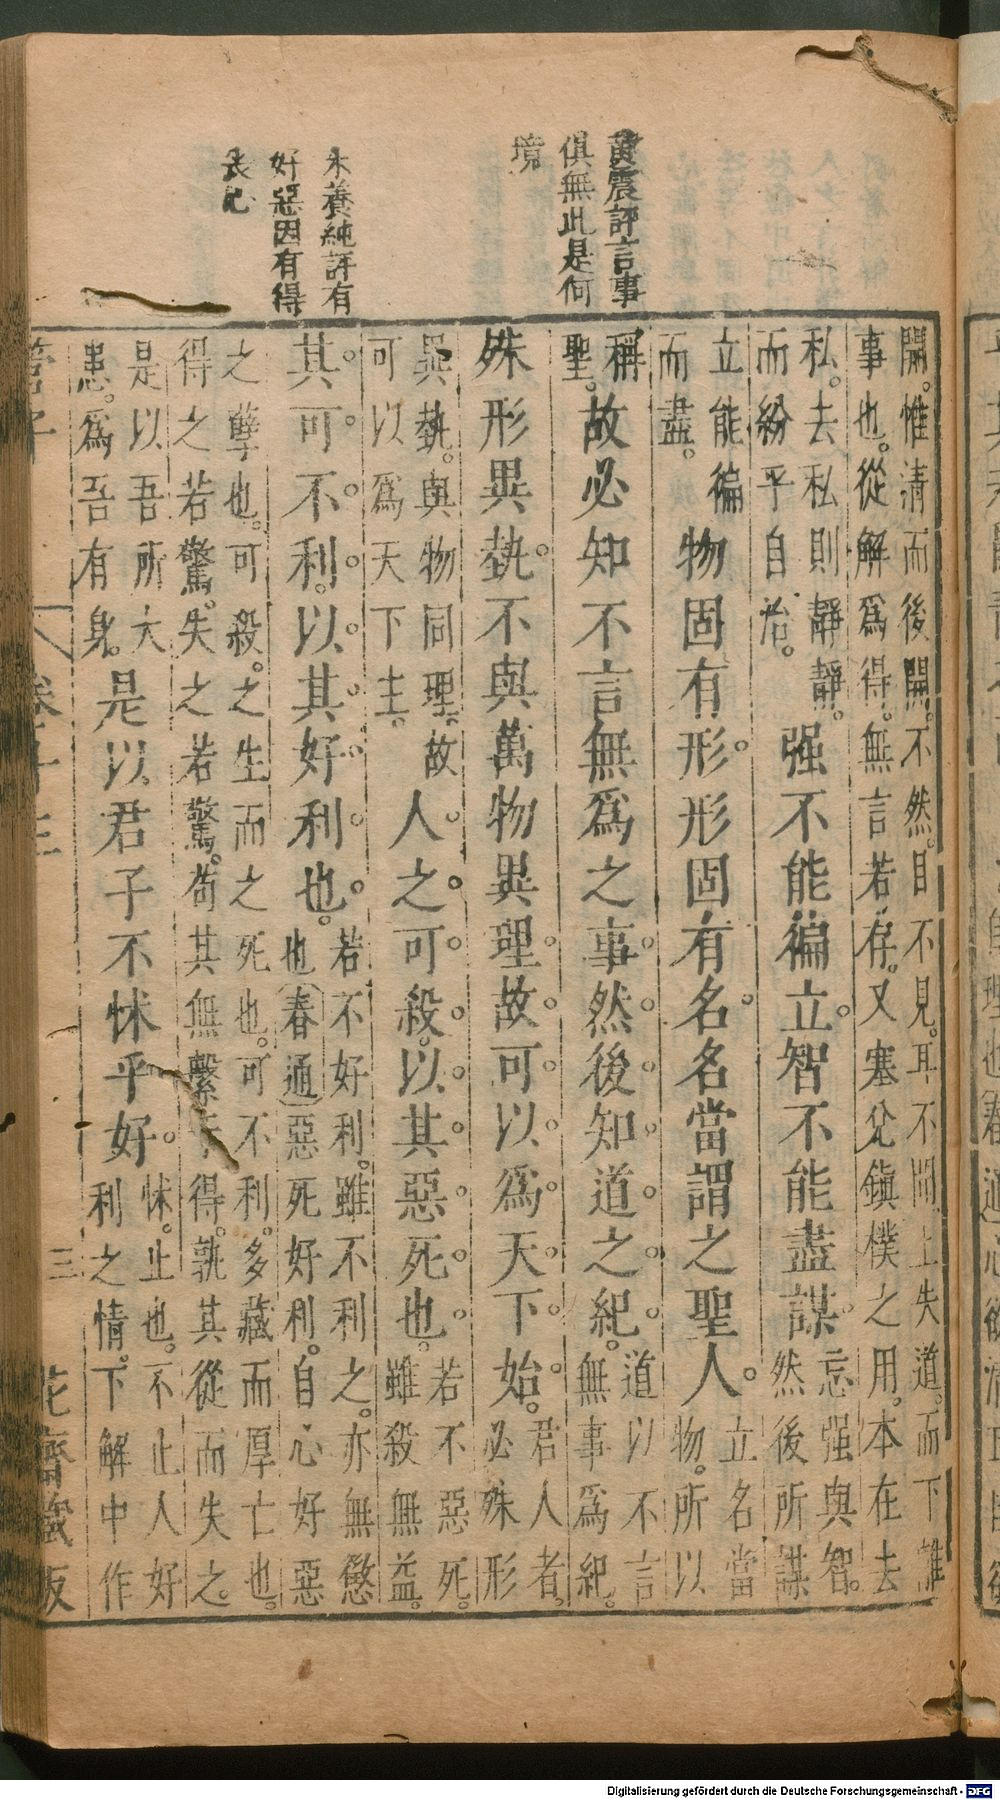 黄震評言事
俱無此是何
境
朱養純評有
好惡因有得
喪心
開。惟清而後開。不然。目不見。耳不聞。上失道。而下離
事也。從解爲得。無言若存。又塞兊鎮樸之用。本在去
私。去私則靜靜。
而紛乎自治。
强不能徧立。智不能盡謀。
忘强與智。
然後所謀
立能徧
而盡。
物固有形。形固有名。名當謂之聖人。
立名當
物。所以
稱
聖。
故必知不言無爲之事。然後知道之紀。
道以不言
無事爲紀。
殊形異埶。不與萬物異理。故可以爲天下始。
君人者。
必殊形
異埶。與物同理。故
可以爲天下主。
人之可殺。以其惡死也。
若不惡死。
雖殺無益。
其可不利。以其好利也。
若不好利。雖不利之。亦無懲
也春通惡死好利。自心好惡
之孽也。可殺。之生而之死也。可不利。多藏而厚亡也。
得之若驚。失之若驚。苟其無繫于得。孰其從而失之。
是以吾所大
患。爲吾有身。
是以君子不怵乎好。
怵。止也。不止人好
利之情。下解中作
管子
卷十三
三
花齋藏板
Digitalisierung gefördert durch die Deutsche Forschungsgemeinschaft - DFG